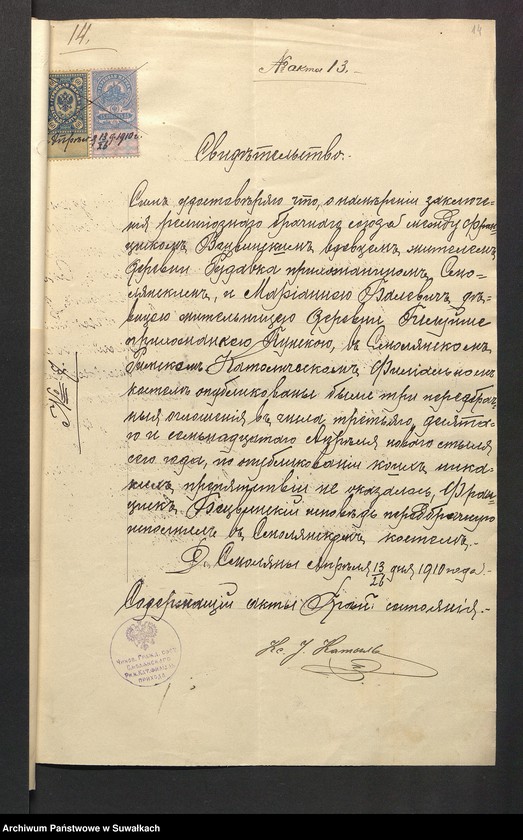 14.
14
№ акта 13.-
Апреля 13/26 1910 г.
Свидѣтельство.
Симъ удостовѣряю что, о намѣреніи заключе-
нія религіознаго брачнаго союза между Фран-
цишкомъ вдовцемъ, жителемъ
деревни Рудавка прихожаниномъ Смо-
лянскимъ, и Маріанною Балевичъ дѣ-
вицею жительницею деревни
прихожанкою Пунскою, въ Смолянскомъ
Римскомъ Католическомъ Филіальномъ
костелѣ опубликованы были три передбрач-
ныя оглашенія въ числа третьяго, десята-
го и семьнадцатаго Апрѣля новаго стиля
сего года, по опубликованіи коихъ ника-
кихъ препятствій не оказалось, Фран-
цишекъ исповѣдь передбрачную
исполнилъ въ Смолянскомъ костелѣ.-
Д. Смоляны Апрѣля 13/26 дня 1910 года.-
Содержащій акты Граж. состоянія.-
Кс. J.
Чинов. Гражд. Сост.
Смолянскаго
Рим. Кат. Филіал.
прихода
Archiwum Państwowe w Suwałkach